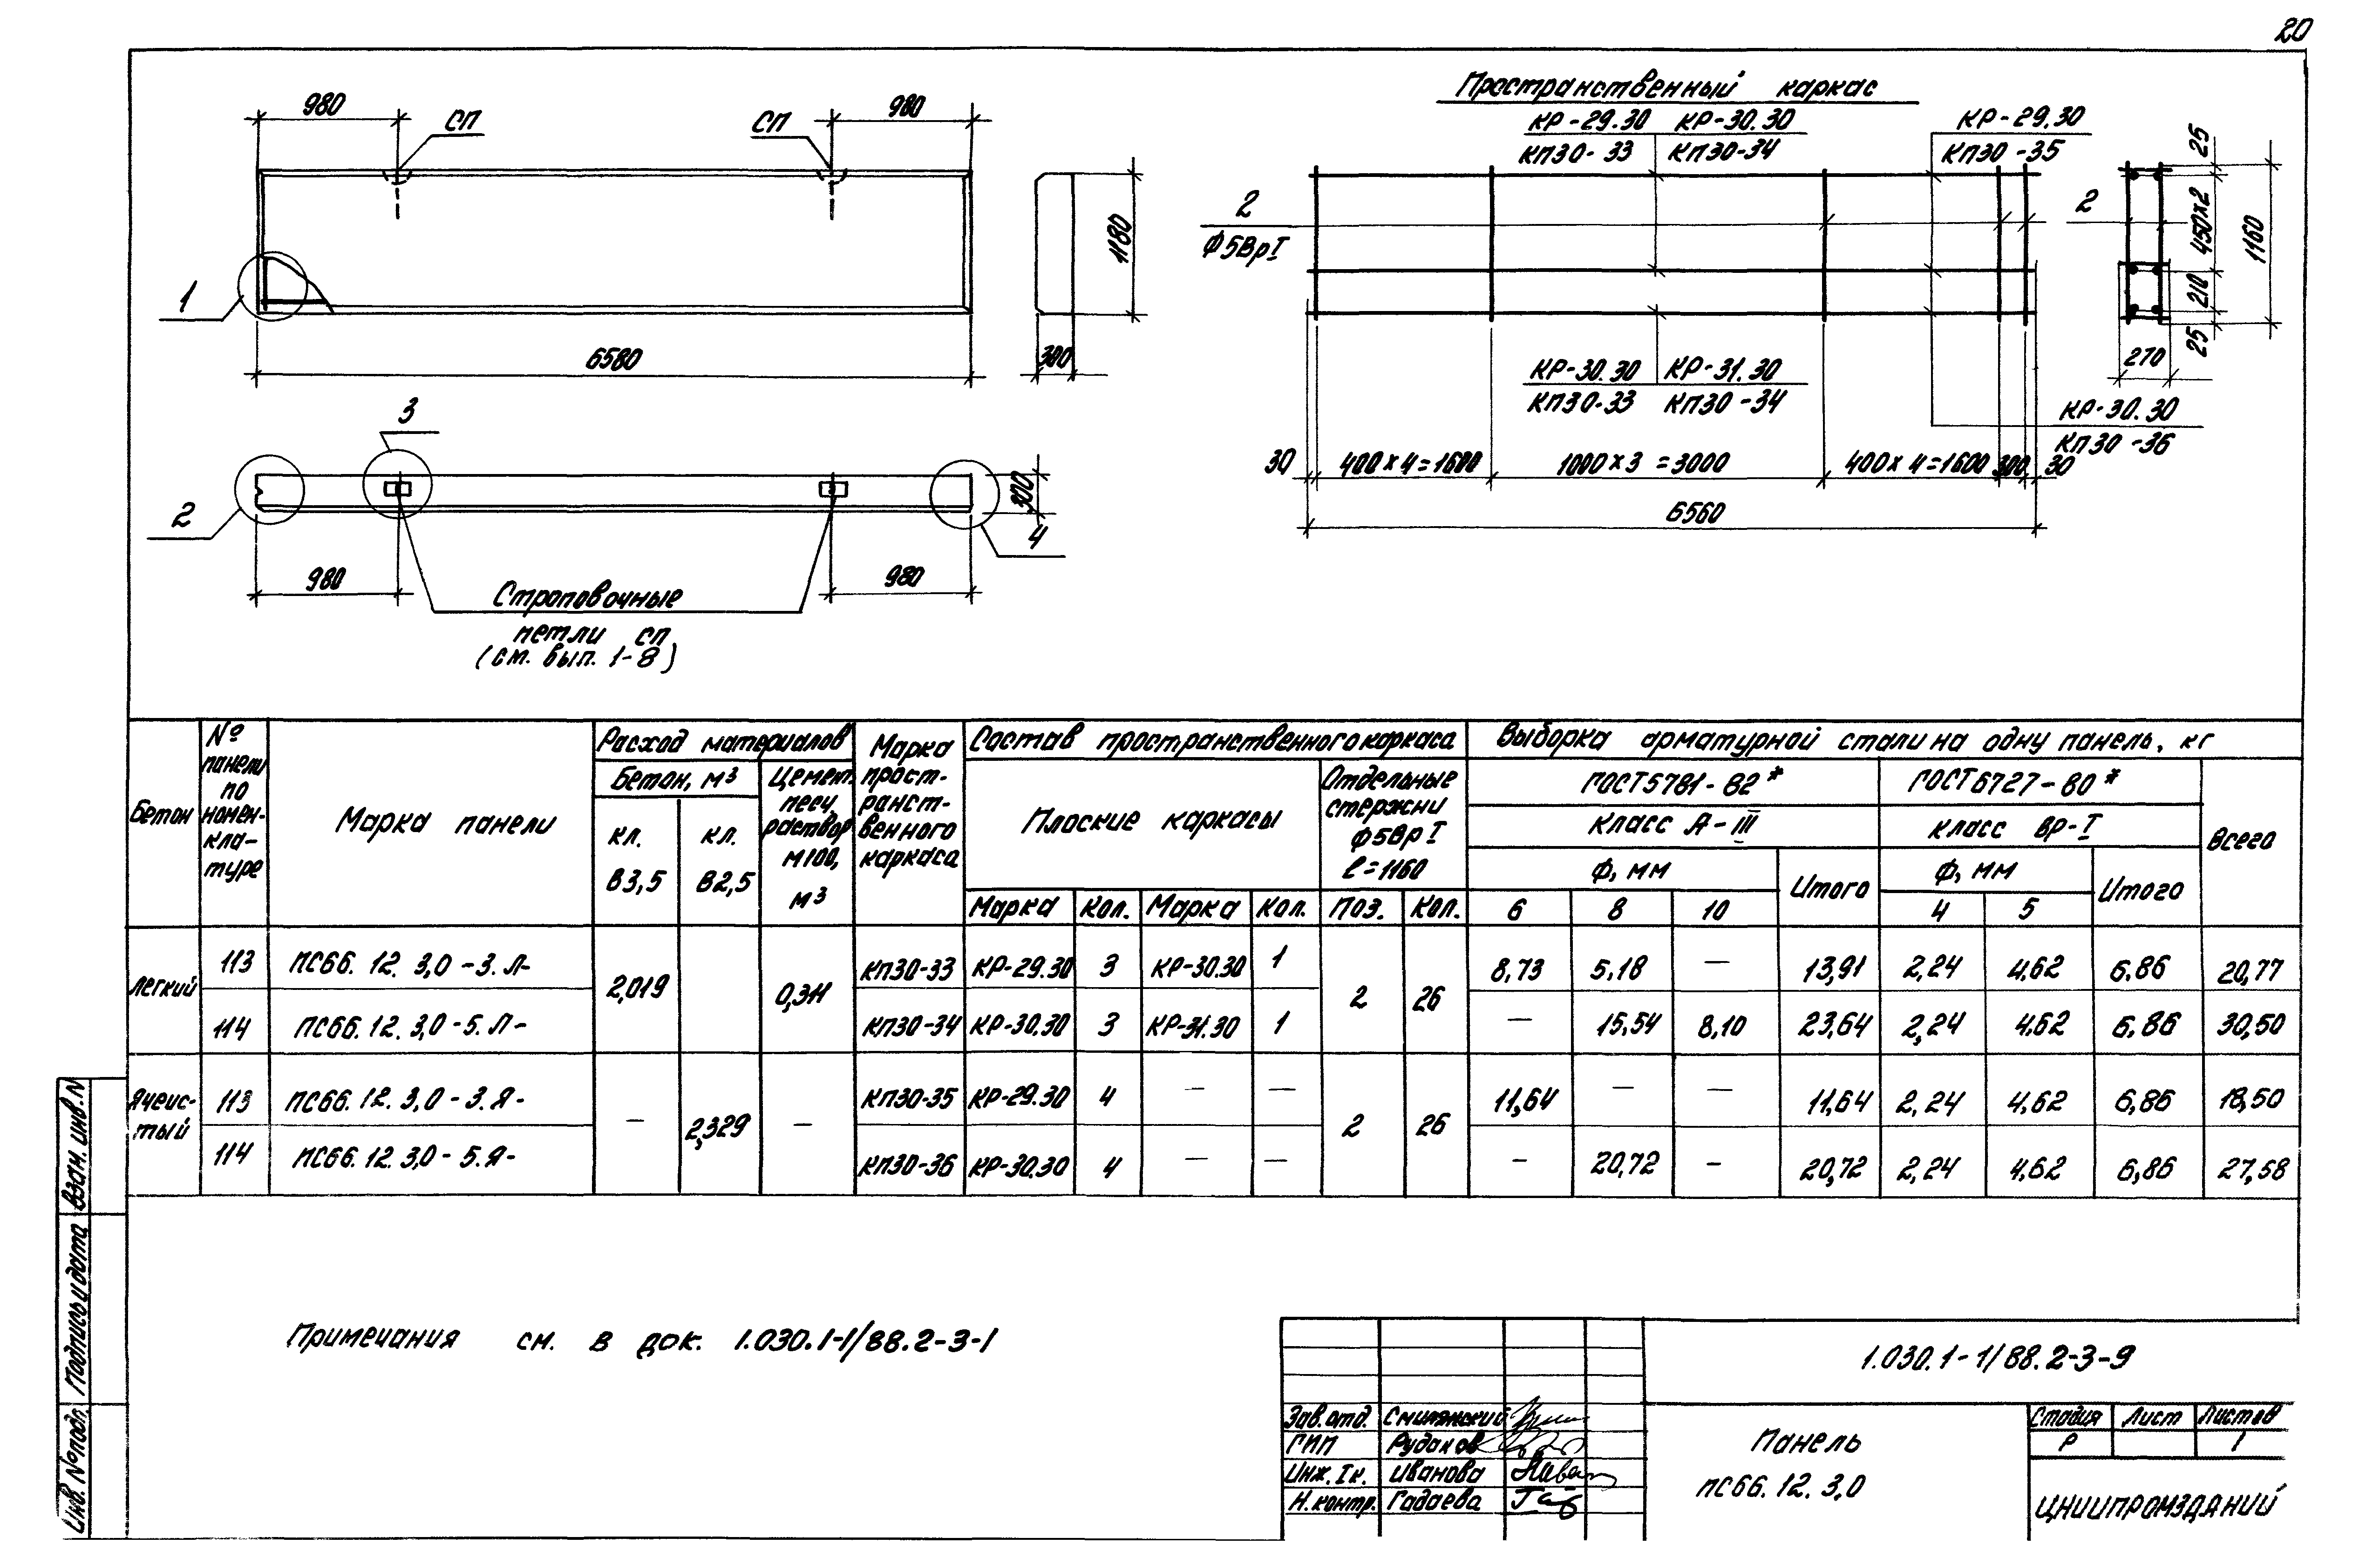 20
980
СП
СП
980
1180
1
6580
300
3
2
300
4
980
980
Строповочные
петли СП
(см. вып. 1-8)
Пространственный каркас
КР-29.30 КР-30.30
КП30-33 КП30-34
КР-29.30
КП30-35
2
Ф5ВрI
2
25
450х2
210
25
1160
270
КР-30.30 КР-31.30
КП30-33 КП30-34
КР-30.30
КП30-36
30 400х4=1600 1000х3=3000 400х4=1600 300 30
6560
Бетон
№ панели по номен-кла-туре
Марка панели
Расход материалов
Бетон, м³
кл. В3,5
кл. В2,5
Цемент. песч. раствор М100, м³
Марка прост-ранст-венного каркаса
Состав пространственного каркаса
Плоские каркасы
Отдельные стержни Ф5ВрI ℓ=1160
Марка Кол. Марка Кол. Поз. Кол.
Выборка арматурной стали на одну панель, кг
ГОСТ 5781-82* ГОСТ 6727-80*
Класс А-III Класс Вр-I
Всего
Ф, мм Итого Ф, мм Итого
6 8 10 4 5
Легкий 113 ПС66.12.3,0-3.Л- 2,019 0,311 КП30-33 КР-29.30 3 КР-30.30 1 2 26 8,73 5,18 — 13,91 2,24 4,62 6,86 20,77
114 ПС66.12.3,0-5.Л- КП30-34 КР-30.30 3 КР-31.30 1 — 15,54 8,10 23,64 2,24 4,62 6,86 30,50
Ячеис-тый 113 ПС66.12.3,0-3.Я- — 2,329 — КП30-35 КР-29.30 4 — — 2 26 11,64 — — 11,64 2,24 4,62 6,86 18,50
114 ПС66.12.3,0-5.Я- КП30-36 КР-30.30 4 — — - 20,72 - 20,72 2,24 4,62 6,86 27,58
Примечания см. в док. 1.030.1-1/88.2-3-1
Взам. инв. N
Подпись и дата
Инв. № подл.
1.030.1-1/88.2-3-9
Зав. отд. Смилянский
ГИП Рудаков
Инж. Iк. Иванова
Н. контр. Гадаева
Панель
ПС66.12.3,0
Стадия Лист Листов
Р 1
ЦНИИПРОМЗДАНИЙ